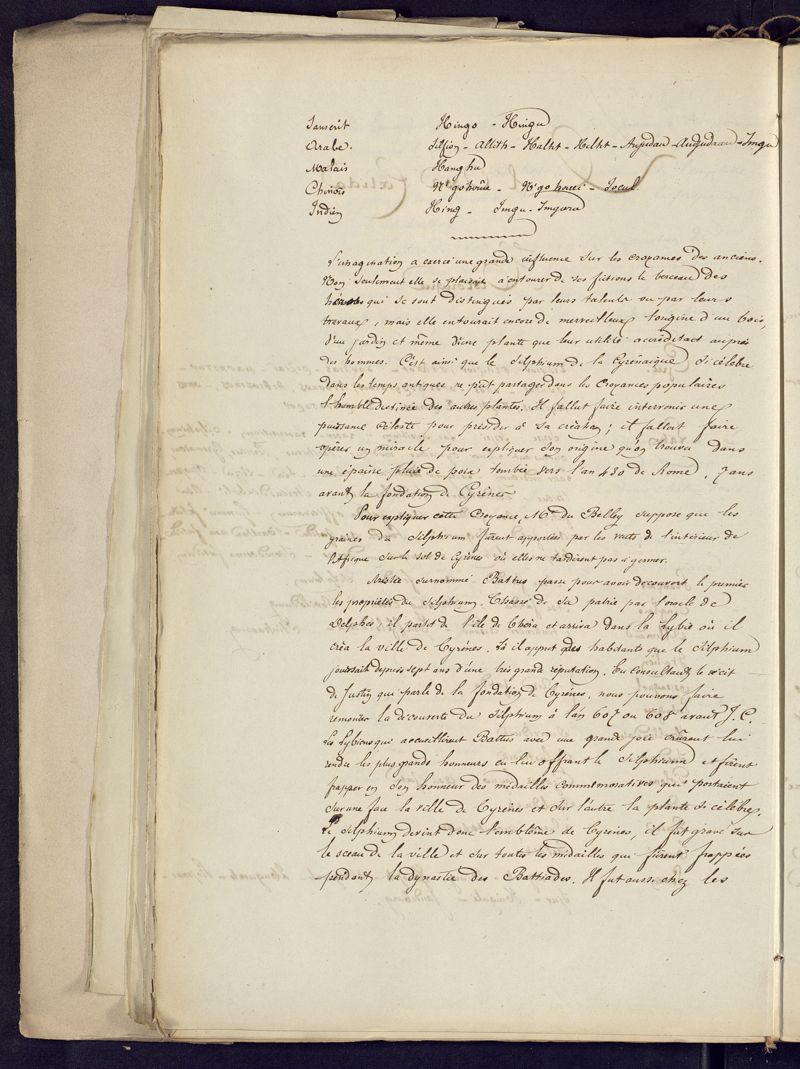 Sanscrit Hingo - Hingu
Arabe. Silfion - Altith - Halht - Hilht - Anjudan - Angudzau - Imgu
Malais Hanghu
Chinois N'gohoûa - N'gohouei - Jocul
Indien Hing - Imgu - Imyara
L'imagination a exercé une grande influence sur les croyances des anciens.
Non seulement elle se plaisait à entourer de ses fictions le berceau des
héros qui se sont distingués par leurs talents ou par leurs
travaux, mais elle entourait encore de merveilleux l'origine d'un bois,
d'un jardin et même d'une plante que leur utilité accréditait auprès
des hommes. C'est ainsi que le Silphium de la Cyrénaïque si célèbre
dans les temps antiques ne put partager dans les croyances populaires
l'humble destinée des autres plantes. Il fallut faire intervenir une
puissance céleste pour présider à sa création; il fallut faire
opérer un miracle pour expliquer son origine qu'on trouva dans
une épaisse pluie de poix tombée vers l'an 430 de Rome, 7 ans
avant la fondation de Cyrènes
Pour expliquer cette Croyance, M. du Belley suppose que les
graines du Silphium furent apportées par les vents de l'intérieur de
l'Afrique sur le sol de Cyrènes où elles ne tardèrent pas à germer.
Aristée surnommé Battus passe pour avoir découvert le premier
les propriétés du Silphium. Chassé de sa patrie par l'oracle de
Delphes il partit de l'île de Théra et arriva dans la Lybie où il
créa la ville de Cyrènes. Là il apprit des habitants que le Silphium
jouissait depuis sept ans d'une très grande réputation. En consultant le récit
de Justin qui parle de la fondation de Cyrènes, nous pouvons faire
remonter la découverte du Silphium à l'an 607 ou 608 avant J. C.
Les Lybiens qui accueillirent Battus avec une grande joie crûrent lui
rendre les plus grands honneurs en lui offrant le Silphium et firent
frapper en son honneur des médailles commémoratives qui portaient
sur une face la ville de Cyrènes et sur l'autre la plante si célèbre.
Le Silphium devint donc l'emblême de Cyrènes, il fut gravé sur
le sceau de la ville et sur toutes les médailles qui furent frappées
pendant la dynastie des Battiades. Il fut aussi chez les